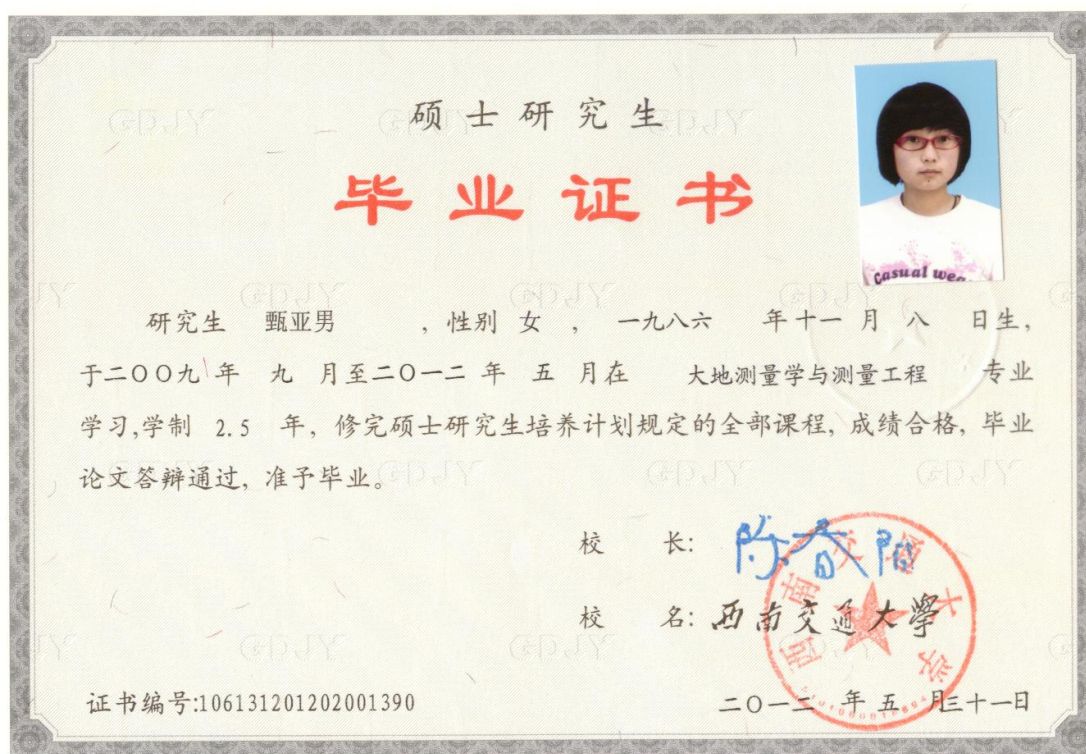 硕士研究生
毕业证书
研究生 甄亚男 ，性别 女 ， 一九八六 年十一 月 八 日生，
于二〇〇九 年 九 月至二〇一二 年 五 月在 大地测量学与测量工程 专业
学习,学制 2.5 年，修完硕士研究生培养计划规定的全部课程，成绩合格，毕业
论文答辩通过，准予毕业。
校 长: 陈春阳
校 名: 西南交通大學
西南交通大学
证书编号:106131201202001390
二〇一二 年 五 月三十一日
Casual wea
GDJY